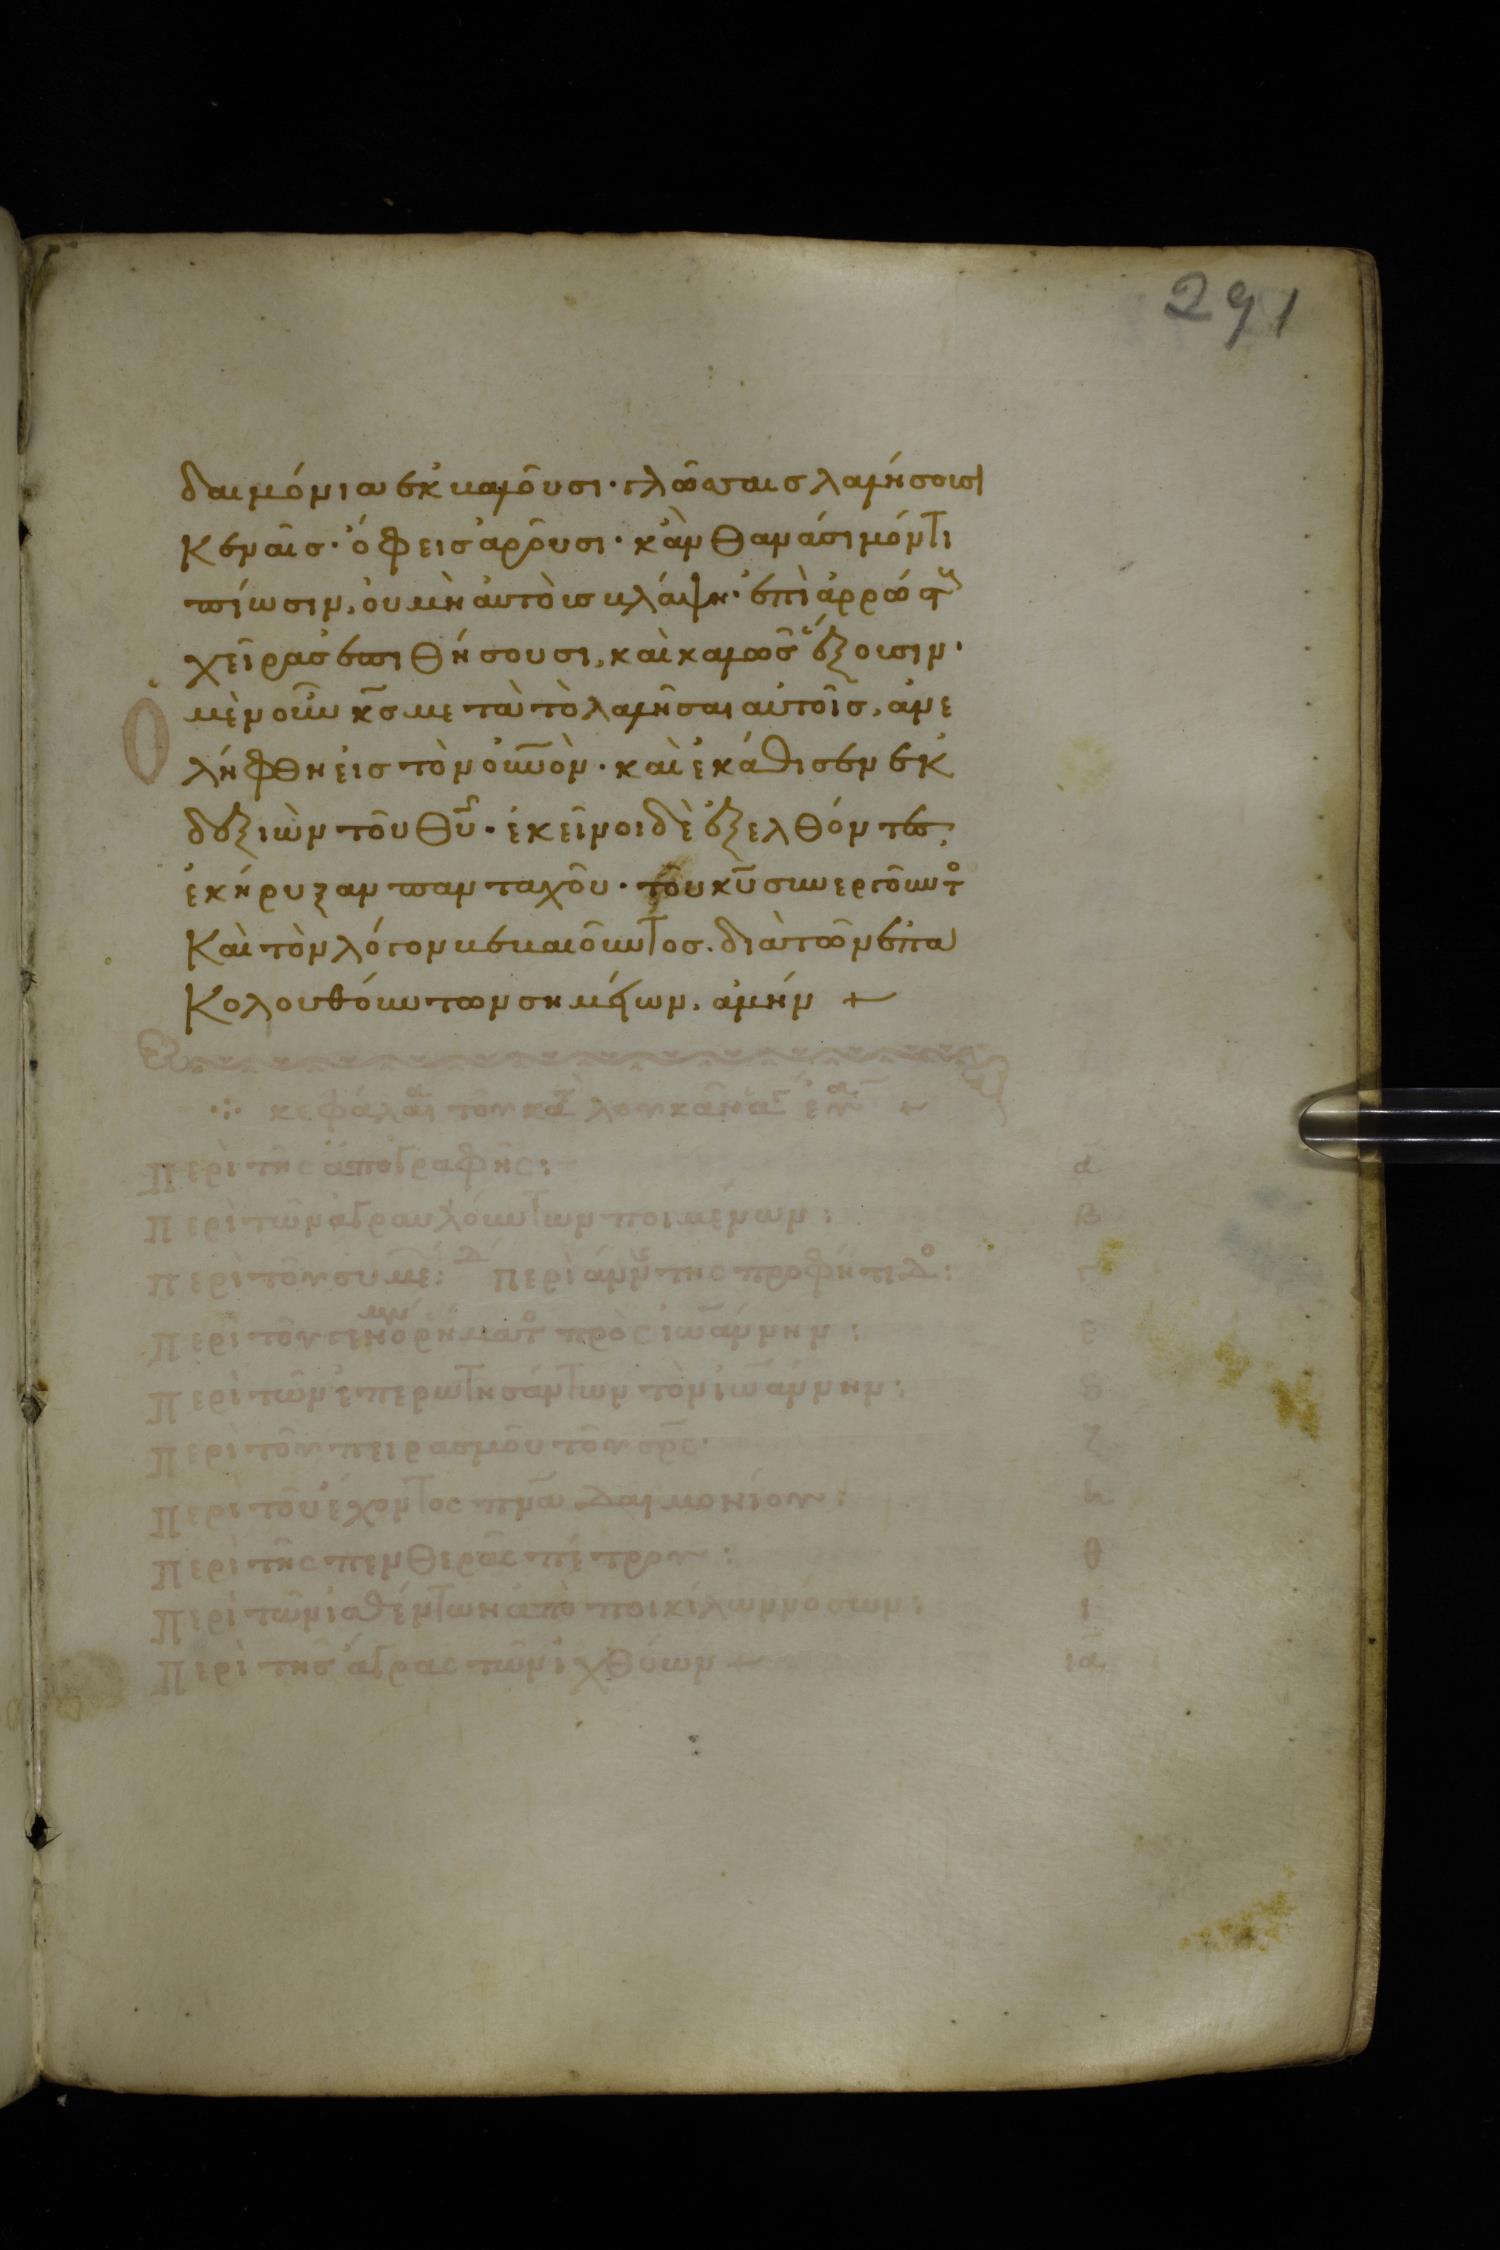 291
δαιμόνια ἐκβαλοῦσι· γλώσσαις λαλήσουσι
καιναῖς· ὄφεις ἀροῦσι· κἂν θανάσιμόν τι
πίωσιν, οὐ μὴ αὐτοὺς βλάψη· ἐπὶ ἀρρώστους
χεῖρας ἐπιθήσουσι, καὶ καλῶς ἕξουσιν·
Ὁ μὲν οὖν κ̅ς̅ μετὰ τὸ λαλῆσαι αὐτοῖς, ἀνε
λήφθη εἰς τὸν οὐ̅ν̅ο̅ν· καὶ ἐκάθισεν ἐκ
δεξιῶν τοῦ θ̅υ̅· ἐκεῖνοι δὲ ἐξελθόντες,
ἐκήρυξαν πανταχοῦ· τοῦ κ̅υ̅ συνεργοῦντο
καὶ τὸν λόγον βεβαιοῦντος. διὰ τῶν ἐπα
κολουθούντων σημείων. ἀμήν +
κεφάλαια τοῦ κατὰ λουκᾶν εὐα
Περὶ τῆς ἀπογραφῆς: α
Περὶ τῶν ἀγραυλούντων ποιμένων: β
Περὶ τοῦ συμε: δ Περὶ ἄννης τῆς προφήτιδο: γ
Περὶ τοῦ γενομένου ῥήματο πρὸς ἰωάννην: ε
Περὶ τῶν ἐπερωτησάντων τὸν ἰωάννην: ϛ
Περὶ τοῦ πειρασμοῦ τοῦ σ̅ρ̅ς· ζ
Περὶ τοῦ ἔχοντος πνα δαιμονίου: η
Περὶ τῆς πενθερᾶς πέτρου: θ
Περὶ τῶν ἰαθέντων ἀπὸ ποικίλων νόσων: ι
Περὶ τῆς ἄγρας τῶν ἰχθύων + ια